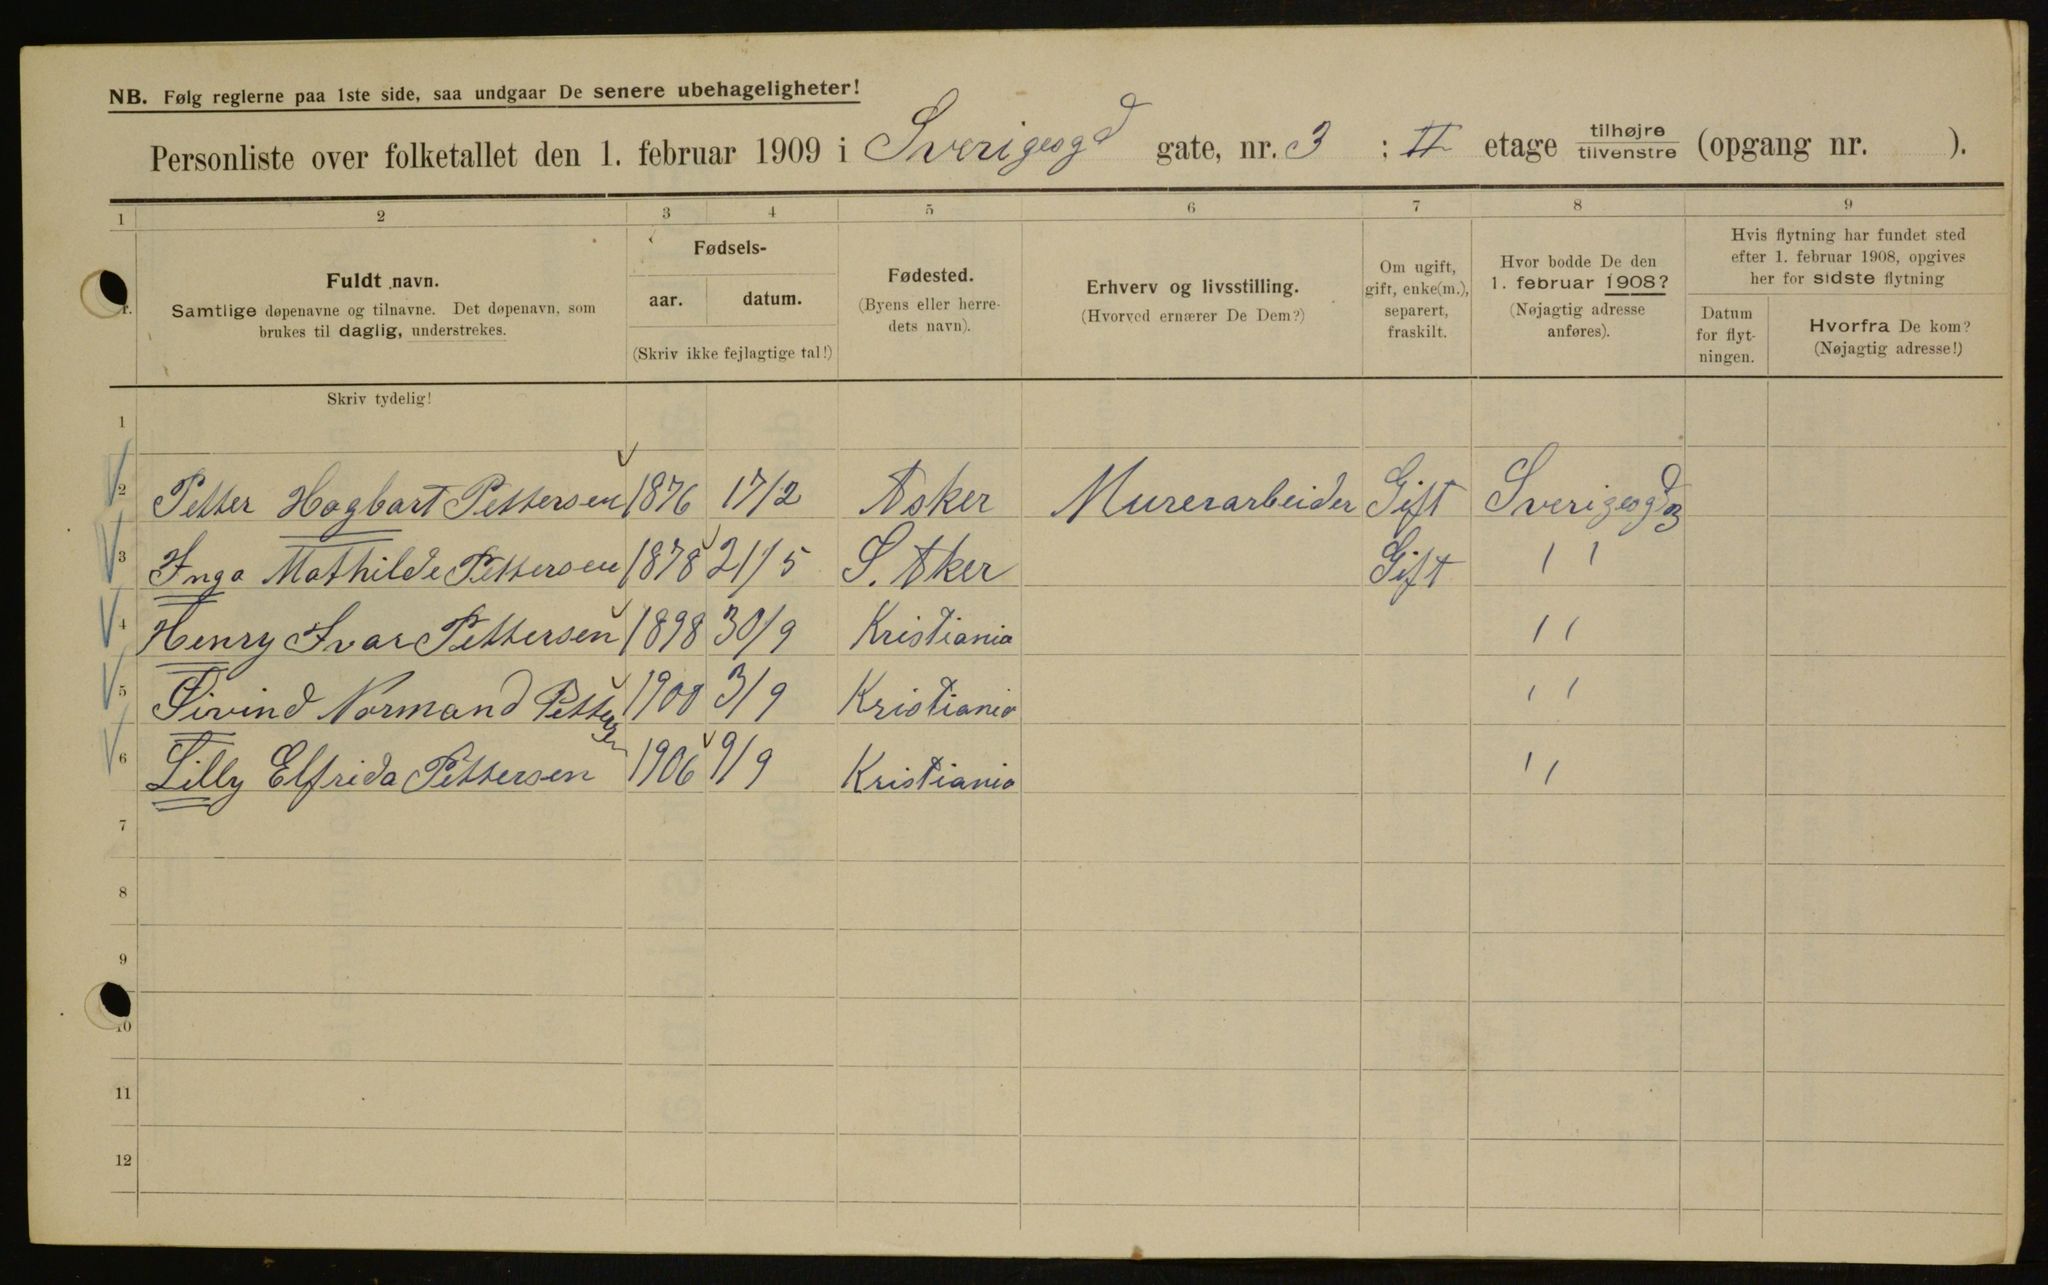 NB. Følg reglerne paa 1ste side, saa undgaar De senere ubehageligheter!
Personliste over folketallet den 1. februar 1909 i Sverigesgd gate, nr. 3 : II etage tilhøjre tilvenstre (opgang nr. ).
1 2 3 4 5 6 7 8 9
Fuldt navn.
Samtlige døpenavne og tilnavne. Det døpenavn, som
brukes til daglig, understrekes.
Fødsels-
aar. datum.
(Skriv ikke fejlagtige tal!)
Fødested.
(Byens eller herre-
dets navn).
Erhverv og livsstilling.
(Hvorved ernærer De Dem?)
Om ugift,
gift, enke(m.),
separert,
fraskilt.
Hvor bodde De den
1. februar 1908?
(Nøjagtig adresse
anføres).
Hvis flytning har fundet sted
efter 1. februar 1908, opgives
her for sidste flytning
Datum
for flyt-
ningen.
Hvorfra De kom?
(Nøjagtig adresse!)
Skriv tydelig!
1
2 Petter Hagbart Pettersen 1876 17/2 Asker Murerarbeider Gift Sverigesgd 3
3 Inga Mathilde Pettersen 1878 21/5 S. Aker Gift " 
4 Henry Ivar Pettersen 1898 30/9 Kristiania "
5 Eivind Normand Pettersen 1900 3/9 Kristiania "
6 Lilly Elfrida Pettersen 1906 9/9 Kristiania "
7
8
9
10
11
12